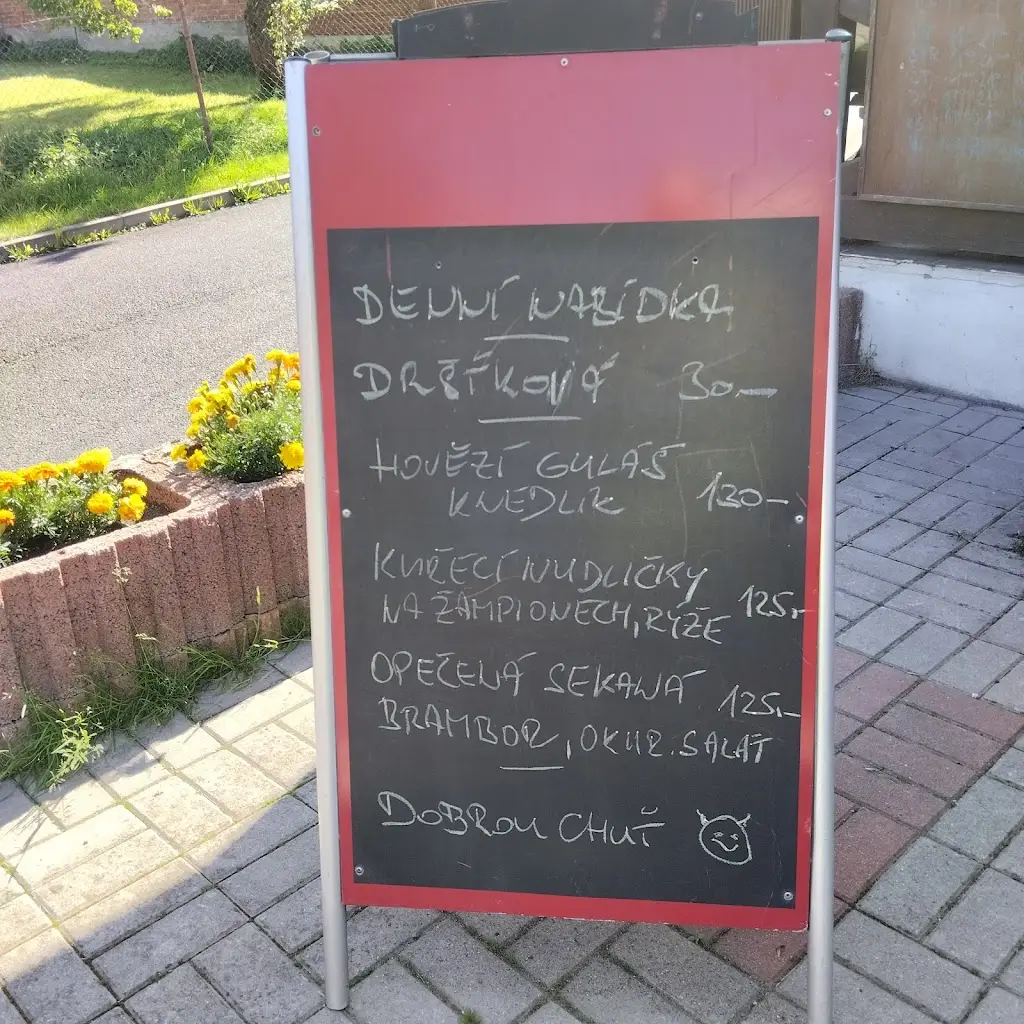 DENNÍ NABÍDKA
DRŠŤKOVÁ 30.—
HOVĚZÍ GULÁŠ
KNEDLÍK 130—
KUŘECÍ NUDLIČKY
NA ŽAMPIONECH, RÝŽE 125,-
OPEČENÁ SEKANÁ 125,-
BRAMBOR, OKUR. SALÁT
DOBROU CHUŤ